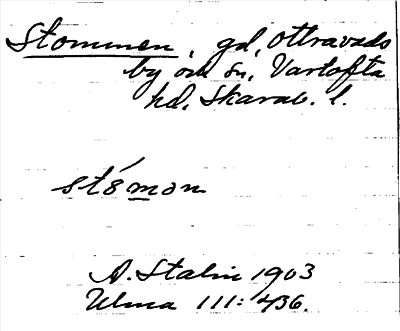 Stommen, gd, Ottravads
by och sn, Vartofta
hd, Skarab. l.
stó̀mɔn
A. Stalin 1903
Ulma 111: 436.